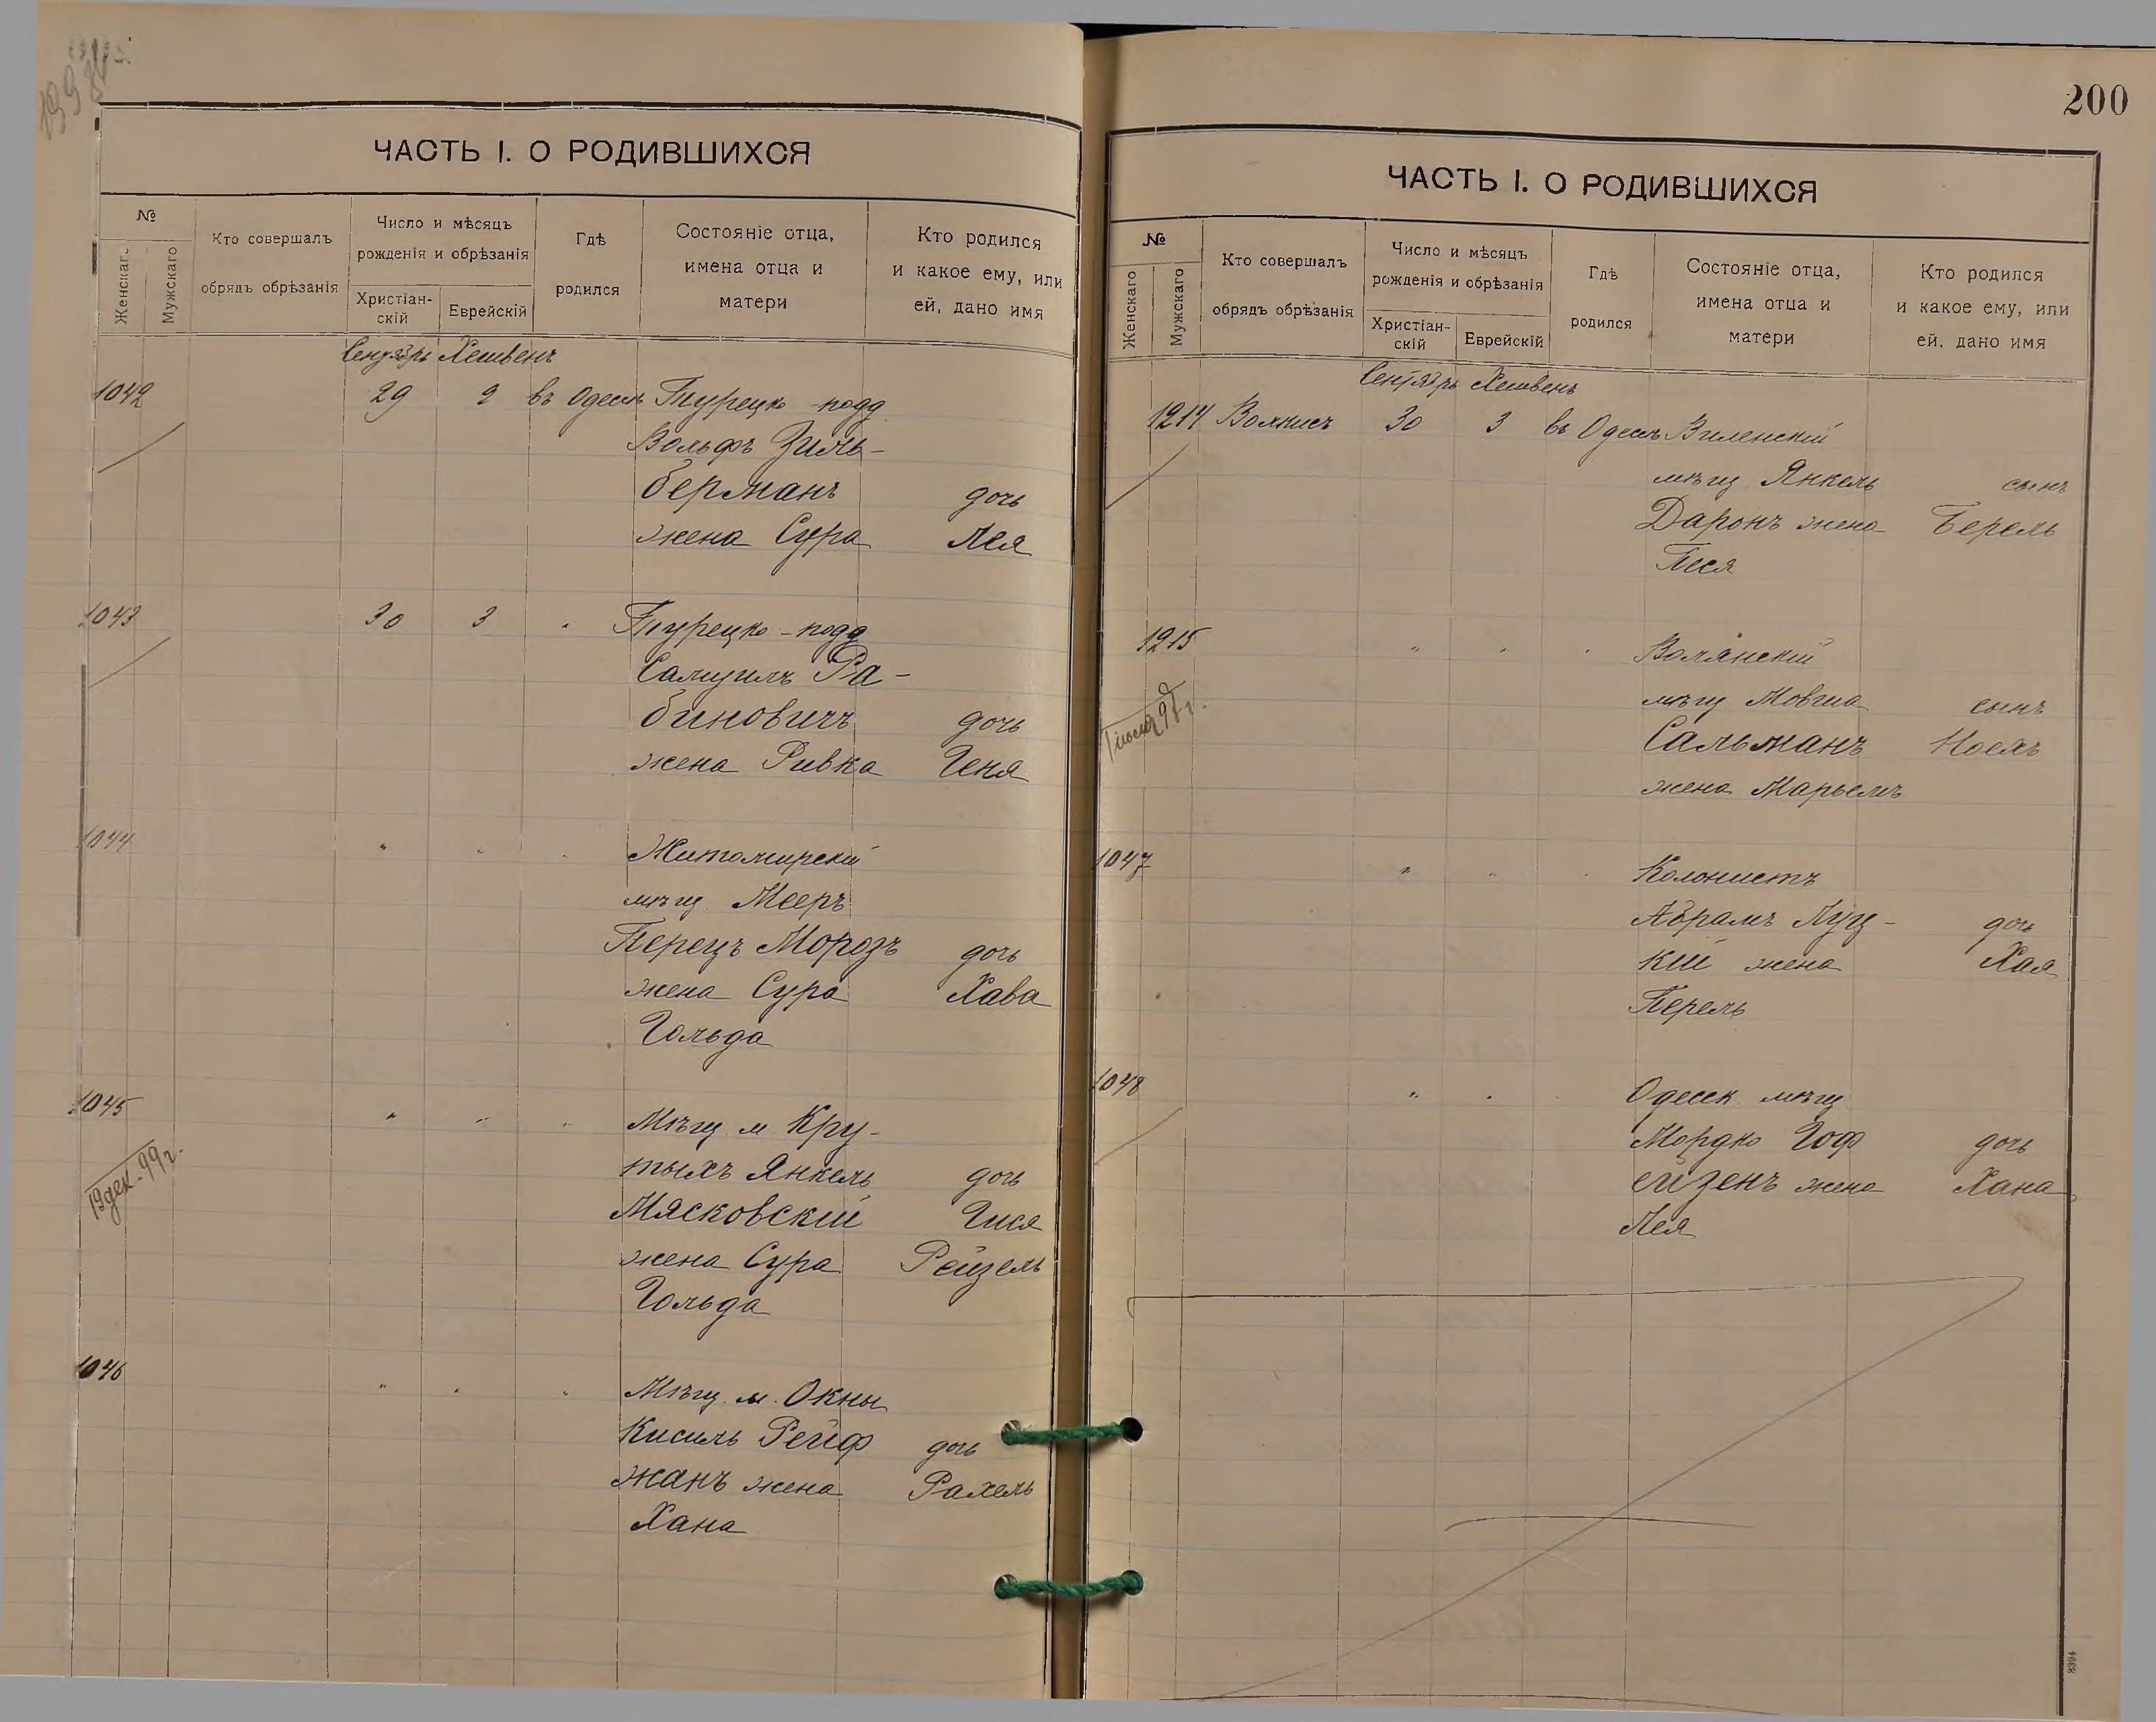 ЧАСТЬ I. О РОДИВШИХСЯ
№
Женскаг.
Мужскаго
Кто совершалъ
обрядъ обрѣзанія
Число и мѣсяцъ
рожденія и обрѣзанія
Христіан-
скій
Еврейскій
Гдѣ
родился
Состояніе отца,
имена отца и
матери
Кто родился
и какое ему, или
ей, дано имя
Сентябрь Хешвенъ
1042 29 2 въ Одессѣ Турецко-подд
Вольфъ Зиль-
берманъ дочь
жена Сура Лея
1043 30 3 " Турецко-подд
Самуилъ Ра-
биновичъ дочь
жена Ривка Геня
1044 " " " Житомирскій
мѣщ Мееръ
Перецъ Морозъ дочь
жена Сура Хава
Гольда
1045 " " " Мѣщ. м Кру-
тыхъ Янкель дочь
19 дек. 99 г.
Мясковскій Гися
жена Сура Рейзель
Гольда
1046 " " " Мѣщ. м. Окны
Кисиль Рейф дочь
манъ жена Рахель
Хана
200
ЧАСТЬ I. О РОДИВШИХСЯ
№
Женскаго
Мужскаго
Кто совершалъ
обрядъ обрѣзанія
Число и мѣсяцъ
рожденія и обрѣзанія
Христіан-
скій
Еврейскій
Гдѣ
родился
Состояніе отца,
имена отца и
матери
Кто родился
и какое ему, или
ей, дано имя
Сентябрь Хешвенъ
1214 30 3 въ Одессѣ Виленскій
мѣщ Янкель сынъ
Даронъ жена Берель
Песя
1215 " " " Волынскій
мѣщ Мовша сынъ
Сальманъ Ноехъ
жена Марьемъ
1047 " " " Колонистъ
Абрамъ Луц- дочь
кій жена Хая
Перель
1048 " " Одесск мѣщ
Мордко Гоф дочь
ейзенъ жена Хана
Лея